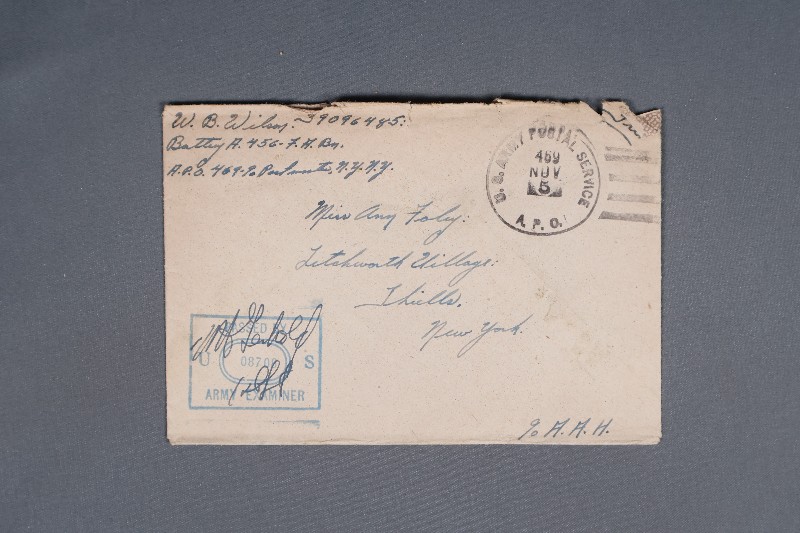 W. B. Wilson. 39096485.
Battery A. 456-F.A. Bn.
A.P.O. 469 ℅ Postmaster, N.Y. N.Y.
U.S. ARMY POSTAL SERVICE
469
NOV
5
A. P. O.
Miss Amy Foley.
Letchworth Village.
Thiells,
New York.
PASSED BY
U S
ARMY EXAMINER
℅ A. A. H.